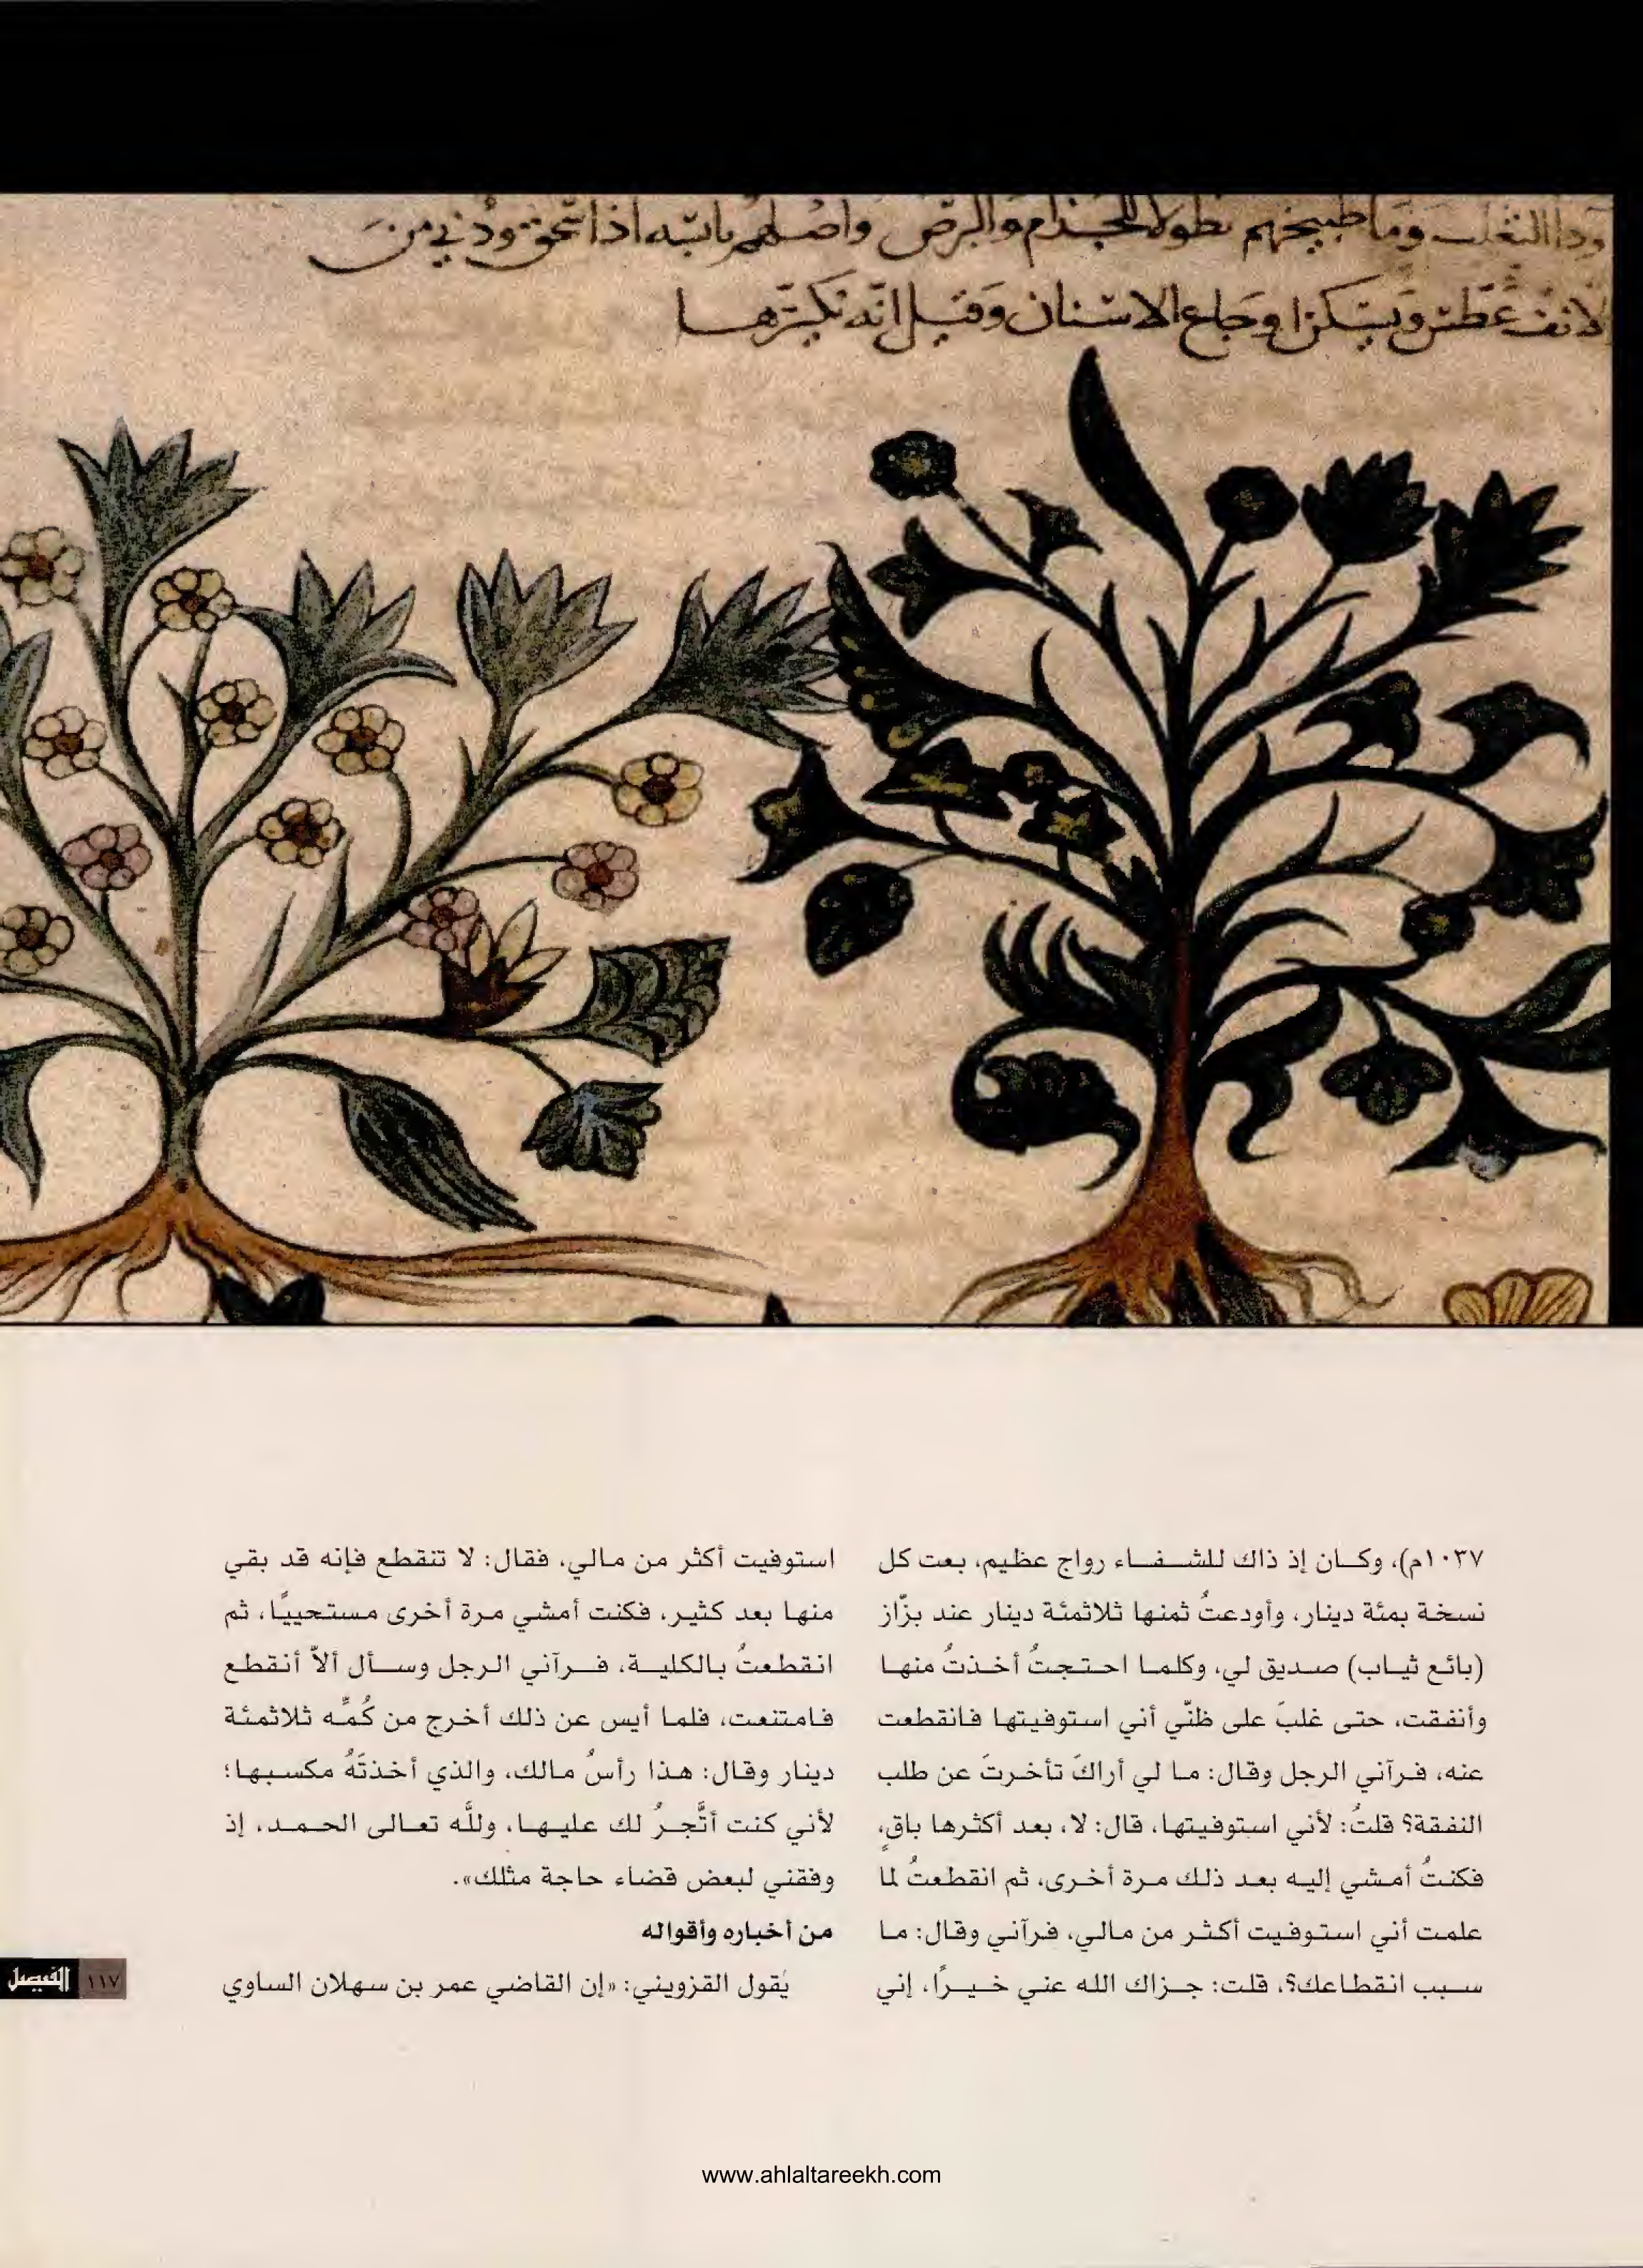 وداالثعلب وماطبيخهم نطولا للجذام والبرص واصلهم يابسه اذا سحق وذني من
لانف عطش ويسكن اوجاع الاسنان وقيل انه يكسرها
١٠٣٧م)، وكان إذ ذاك للشفاء رواج عظيم، بعت كل
نسخة بمئة دينار، وأودعتُ ثمنها ثلاثمئة دينار عند بزّاز
(بائع ثياب) صديق لي، وكلما احتجتُ أخذتُ منها
وأنفقت، حتى غلبَ على ظنّي أني استوفيتها فانقطعت
عنه، فرآني الرجل وقال: ما لي أراكَ تأخرتَ عن طلب
النفقة؟ قلتُ: لأني استوفيتها، قال: لا، بعد أكثرها باقٍ،
فكنتُ أمشي إليه بعد ذلك مرة أخرى، ثم انقطعتُ لما
علمت أني استوفيت أكثر من مالي، فرآني وقال: ما
سبب انقطاعك؟، قلت: جزاك الله عني خيرًا، إني
استوفيت أكثر من مالي، فقال: لا تنقطع فإنه قد بقي
منها بعد كثير، فكنت أمشي مرة أخرى مستحييًا، ثم
انقطعتُ بالكلية، فرآني الرجل وسأل ألاّ أنقطع
فامتنعت، فلما أيس عن ذلك أخرج من كُمِّه ثلاثمئة
دينار وقال: هذا رأسُ مالك، والذي أخذتَهُ مكسبها؛
لأني كنت أتَّجرُ لك عليها، وللَّه تعالى الحمد، إذ
وفقني لبعض قضاء حاجة مثلك».
من أخباره وأقواله
يقول القزويني: «إن القاضي عمر بن سهلان الساوي
١١٧ الفيصل
www.ahlaltareekh.com